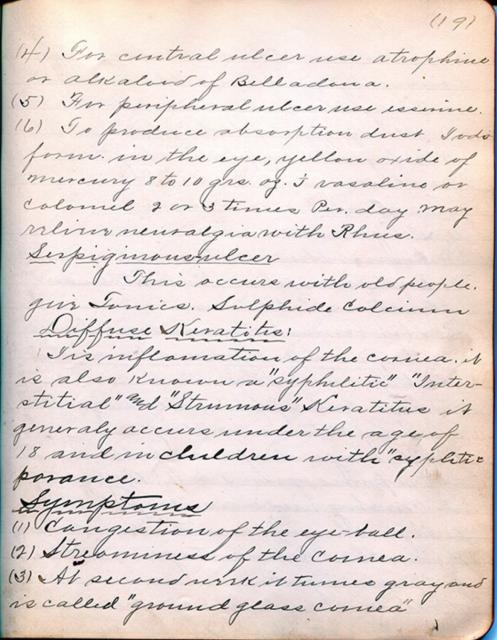 (19)
(4) For central ulcer use atrophine
or alkaloid of Belladona.
(5) For peripheral ulcer use esserine.
(6) To produce absorption dust Iodo
form in the eye, yellow oxide of
mercury 8 to 10 grs. oz. i vasaline or
colomel 2 or 3 times Per. day may
relieve neuralgia with Rhus.
Serpiginous ulcer
This occurs with old people.
give Tonics. Sulphide Calcium
Diffuse Keratits:
Tis inflamation of the cornea. it
is also known a "syphilitic" "Inter-
stitial" and "Strumous" Keratitus it
generaly occurs under the age of
18 and in children with "syphitic
porance.
Symptoms
(1) Congestion of the eye-ball.
(2) Streaminess of the cornea.
(3) At second week it turnes gray and
is called "ground glass cornea"